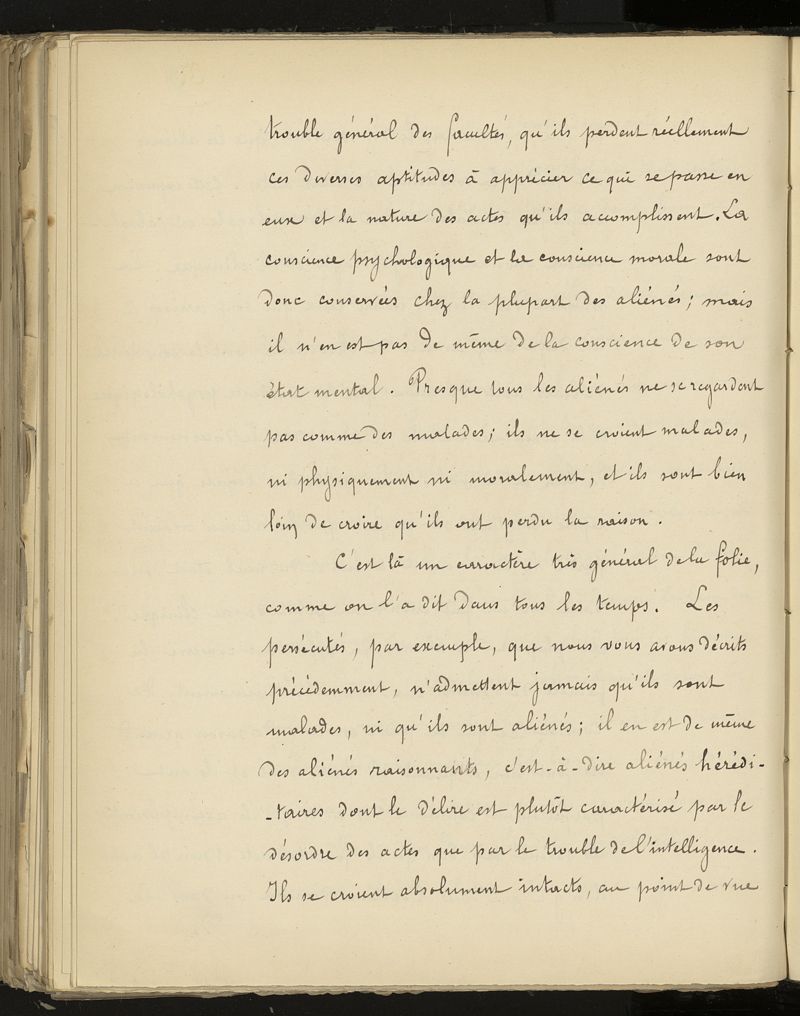 trouble général des facultés, qu'ils perdent réellement
ces diverses aptitudes à apprécier ce qui se passe en
eux et la nature des actes qu'ils accomplissent. La
conscience psychologique et la conscience morale sont
donc conservées chez la plupart des aliénés; mais
il n'en est pas de même de la conscience de son
état mental. Presque tous les aliénés ne se regardent
pas comme des malades; ils ne se croient malades,
ni physiquement ni moralement, et ils sont bien
loin de croire qu'ils ont perdu la raison.
C'est là un caractère très général de la folie,
comme on l'a dit dans tous les temps. Les
persécutés, par exemple, que nous vous avons décrits
précédemment, n'admettent jamais qu'ils sont
malades, ni qu'ils sont aliénés; il en est de même
des aliénés raisonnants, c'est-à-dire aliénés hérédi-
-taires dont le délire est plutôt caractérisé par le
désordre des actes que par le trouble de l'intelligence.
Ils se croient absolument intacts, au point de vue